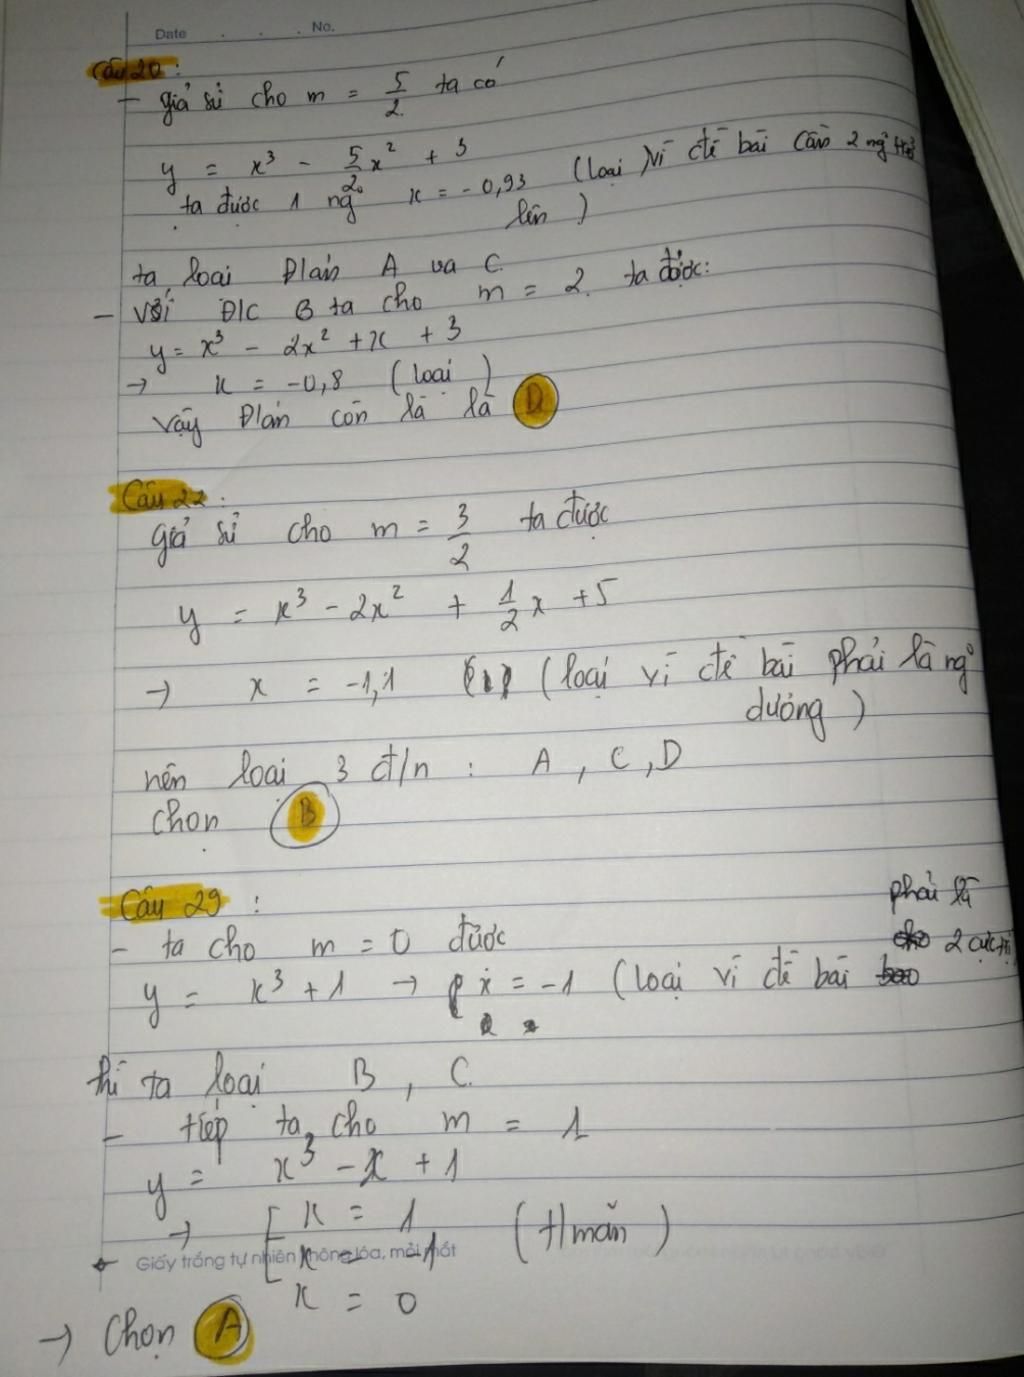 Date . . . No.
Câu 20 :
- giả sử cho m = 5/2 ta có
y = x³ - 5/2x² + 3
ta được 1 ngº x = -0,93 (loại) vì đề bài cần 2 ngº trở
lên )
ta loại Đ/án A và C.
- Với Đ/C B ta cho m = 2. ta được:
y = x³ - 2x² + x + 3
→ x = -0,8 (loại)
vậy Đ/án còn là là D
Câu 22 :
giả sử cho m = 3/2 ta được
y = x³ - 2x² + 1/2x + 5
→ x = -1,1 (loại vì đề bài phải là ngº
dương )
nên loại 3 đ/n : A , C, D
chọn B
Câu 29 :
phải là
- ta cho m = 0 được
2 cực trị
y = x³ + 1 → x = -1 (loại vì đề bài
thì ta loại B , C.
- tiếp ta cho m = 1
y = x³ - x + 1
→ [ x = 1 (t/mãn )
x = -1
Giấy trắng tự nhiên không lóa, mỏi mắt
x = 0
→ Chọn A